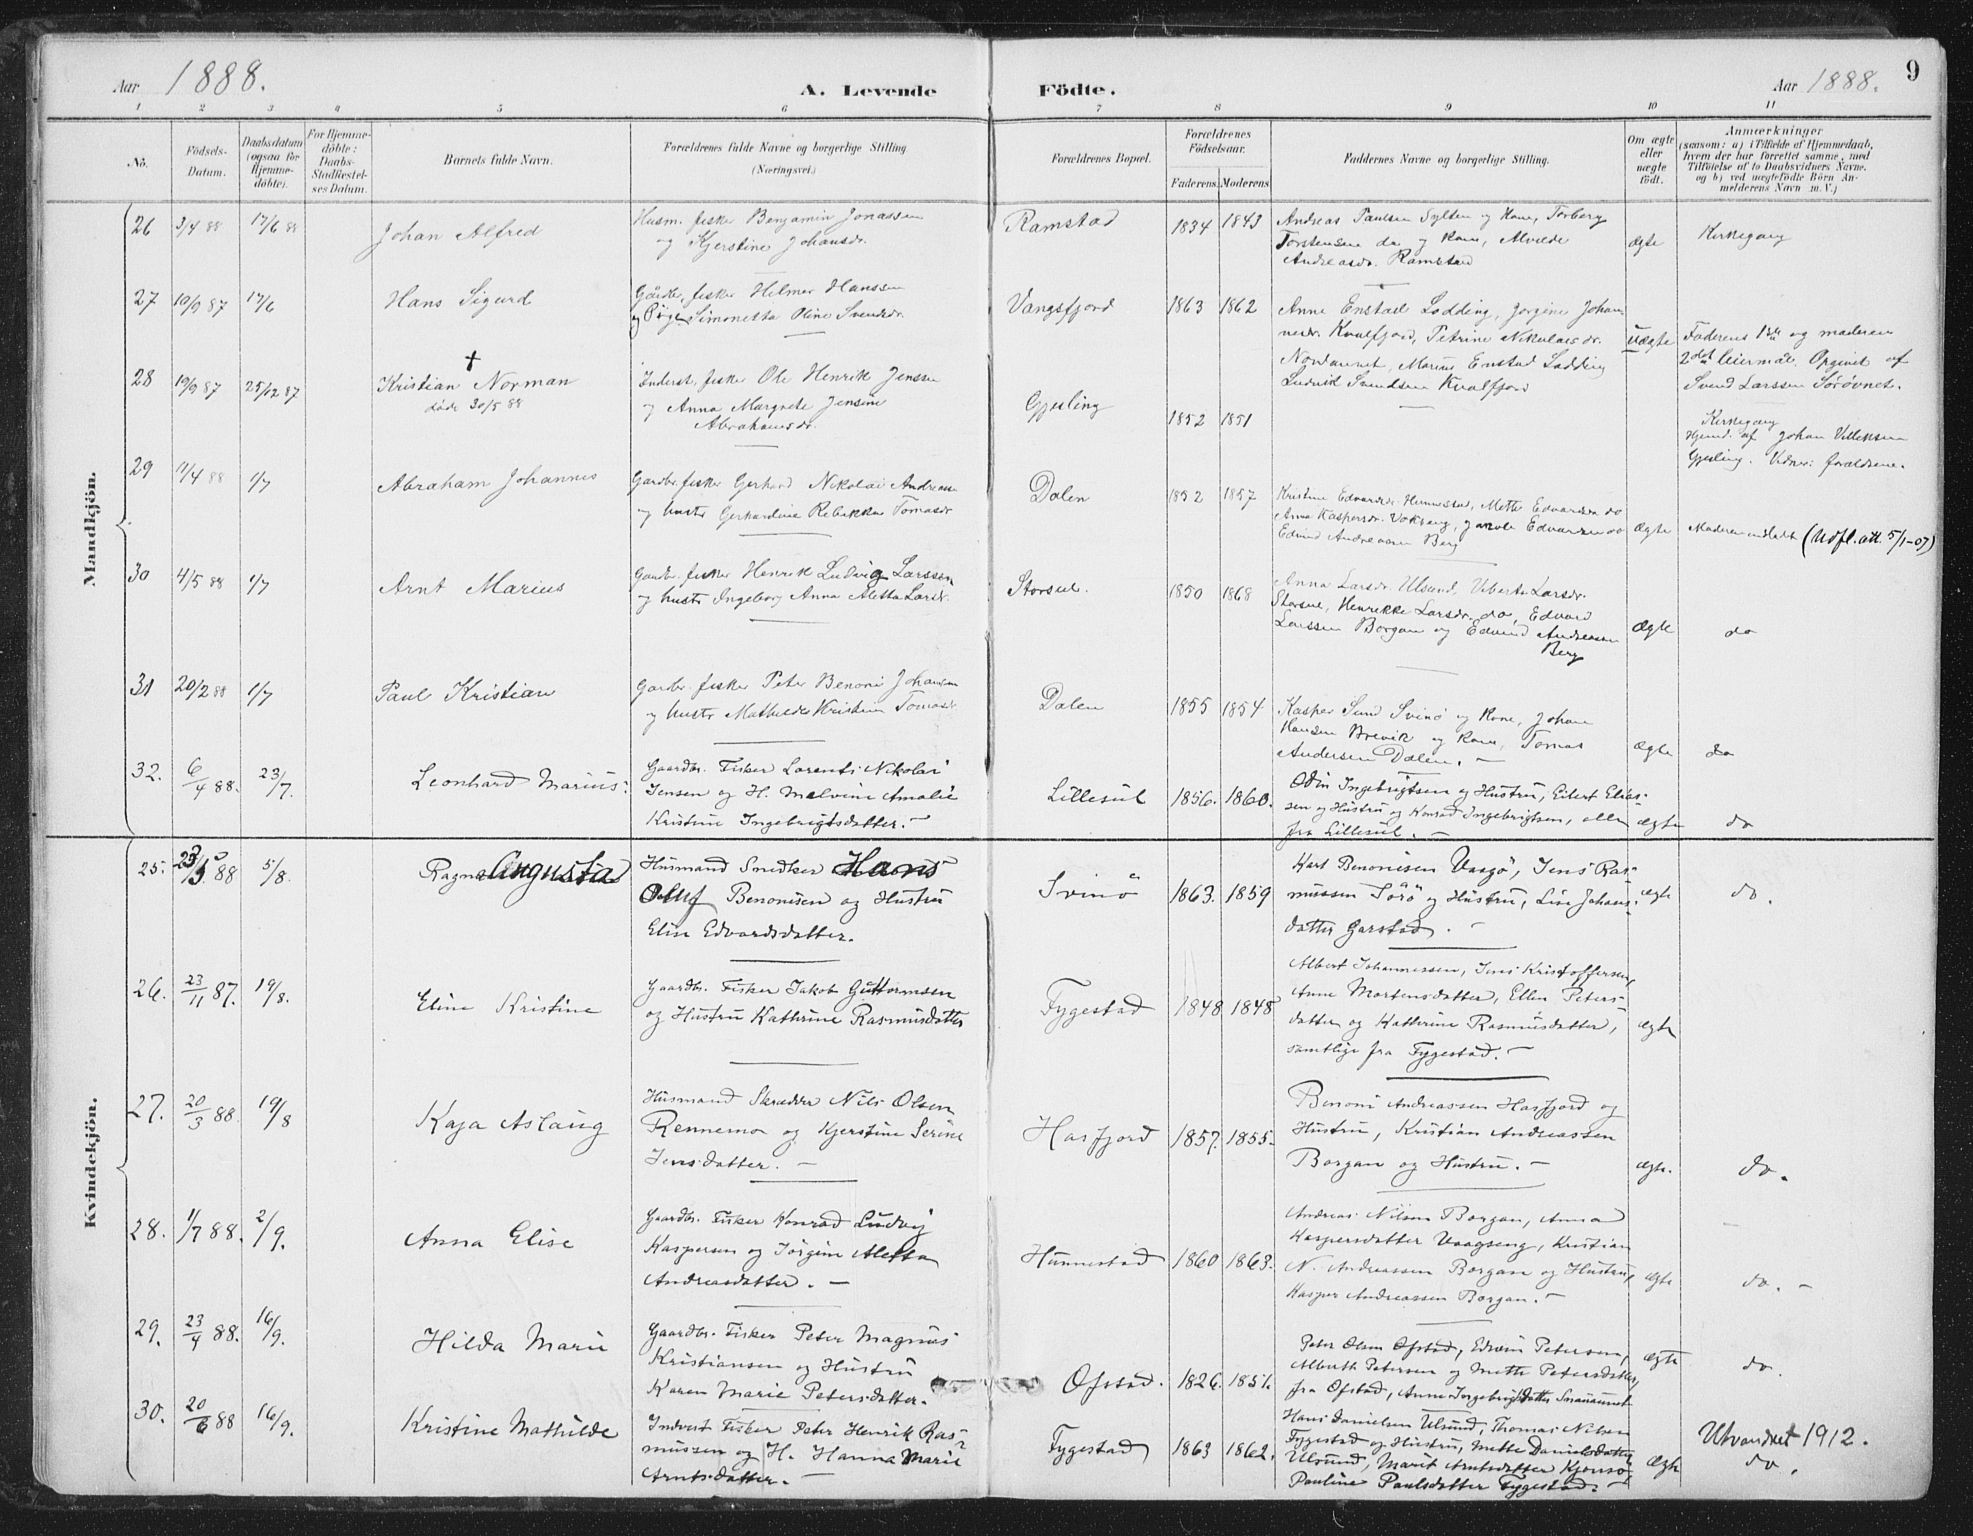 Aar 1888. A. Levende Födte. Aar 1888. 9
1 2 3 4 5 6 7 8 9 10 11
No. Födsels-Datum. Daabsdatum (ogsaa for Hjemmedöbte). For Hjemmedöbte: Daabs-Stadfæstelses Datum. Barnets fulde Navn. Forældrenes fulde Navne og borgerlige Stilling (Næringsvei.) Forældrenes Bopæl. Forældrenes Födselsaar. Faderens. Moderens Faddernes Navne og borgerlige Stilling. Om ægte eller uægte födt. Anmærkninger
(saasom: a) i Tilfælde af Hjemmedaab,
hvem der har forrettet samme, med
Tilföielse af to Daabsvidners Navne.
og b) ved uægtefödte Börn Anmelderens Navn m. V.)
Mandkjön.
26 3/4 88 17/6 88 Johan Alfred
Husm. fisker Benjamin Jonassen
og Kjerstine Johansdr.
Ramstad 1834 1843
Andreas Paulsen Sylten og Kone, Torberg
Torstensen do og Kone, Alvilde
Andreasdr. Ramstad
ægte Kirkegang
27 10/9 87 17/6 Hans Sigurd
fisker Hilmer Hanssen
og Pige Simonetta Oline Svendsdr.
Vangsfjord 1863 1862
Anne Enstad Lodding, Jorgine Johan-
nesdr. Kvalfjord, Petrine Nikolaisdr.
Nordaunet, Marius Enstad Lodding
Ludvid Svendsen Kvalfjord
uægte
Faderens 1ste og moderens
2det leiermaal. Opgivet af
Svend Larssen Sörövnet.
28 19/9 87 25/12 87 Kristian Norman
†
döde 30/5 88
Inderst, fisker Ole Henrik Jensen
og Anna Margrete Jensine
Abrahamsdr.
Gjesling 1852 1851
Kirkegang
Hjemd. af Johan Villeksen
Gjesling. Vidner: forældrene.
29 11/4 88 1/7 Abraham Johannes
Gardbr. fisker Gerhard Nikolai Andreas
og hustr Gerhardine Rebekka Tomasdr
Dalen 1852 1857
Kristine Edvardsdr. Hunnestad, Mette Edvardsen do
Anna Kaspersdr. Vokseng, Jakob Edvardsen do
Edvind Andreassen Berg
ægte Moderen indledt (Udfl. att. 5/1-07)
30 4/5 88 1/7 Arnt Marius
Gardbr. fisker Henrik Ludvig Larssen
og hustr Ingeborg Anna Aletta Larsdr.
Storsul. 1850 1868
Anna Larsdr. Ulsund, Larsdr.
Storsul, Henrikke Larsdr. do, Edvard
Larssen Borgan og Edvind Andreassen
Berg
ægte do
31 20/2 88 1/7 Paul Kristian
Gardbr. fisker Peter Benoni Johansen
og hustr Mathilde Kristine Tomasdr
Dalen 1855 1854
Kasper Sund Svinö og Kone, Johan
Hansen Brevik og Kone, Tomas
Andersen Dalen. —
ægte do
32. 6/4 88. 23/7. Leonhard Marius.
Gaardbr. Fisker Lorents Nikolai
Jensen og H. Malvine Amalie
Kristine Ingebrigtsdatter. —
Lillesul 1856. 1860.
Odin Ingebrigtsen og Hustru, Eilert Elias-
sen og Hustru og Konrad Ingebrigtsen, alle
fra Lillesul. —
ægte do
Kvindekjön.
25. 23/5 88 5/8. Ragna Augusta
Husmand Snedker Hans
Oluf Benonisen og Hustru
Elise Edvardsdatter.
Svinö 1863. 1859
Karl Benonisen Vaagö, Jens Ras-
mussen Sörö og Hustru, Lise Johans-
datter Garstad. —
ægte do.
26. 23/11 87. 19/8. Eline Kristine
Gaardbr. Fisker Jakob Guttormsen
og Hustru Kathrine Rasmusdatter
Fygestad 1848 1848
Albert Johannessen, Jens Kristoffersen,
Anne Mortensdatter, Ellen Peters-
datter og Katherine Rasmusdatter,
samtlige fra Fygestad. —
ægte
27. 20/3 88. 19/8 Kaja Aslaug
Husmand Skrædder Nils Olsen
Rennemo og Kjerstine Serine
Jensdatter. —
Hasfjord 1857. 1855.
Benoni Andreassen Hasfjord og
Hustru, Kristian Andreassen
Borgan og Hustru. —
ægte. do.
28. 1/7 88. 2/9. Anna Elise
Gaardbr. Fisker Konrad Ludvig
Kaspersen og Jörgine Aletta
Andreasdatter. —
Hunnestad 1860 1863.
Andreas Nilsen Borgan, Anna
Kaspersdatter Vaagseng, Kristian
N. Andreassen Borgan og Hustru,
Kasper Andreassen Borgan. —
ægte do. —
29. 23/4 88. 16/9. Hilda Marie
Gaardbr. Fisker Peter Magnus
Kristiansen og Hustru
Karen Marie Petersdatter.
Ofstad. 1826. 1851.
Peter Olsen Ofstad, Edvin Petersen,
Alberth Petersen og Mette Petersdatter,
fra Ofstad, Anne Ingebrigtsdatter Smaaunet
ægte do.
30. 20/6 88 16/9. Kristine Mathilde
Inderst Fisker Peter Henrik Ras-
mussen og H. Hanna Marie
Arntsdatter. —
Fygestad 1863 1862.
Hans Danielsen Ulsund, Thomas Nilsen
Fygestad og Hustru, Mette Danielsdatter
Ulsund, Marit Arntsdatter Kjønsø,
Pauline Paulsdatter Fygestad. —
ægte Utvandret 1912.
do.